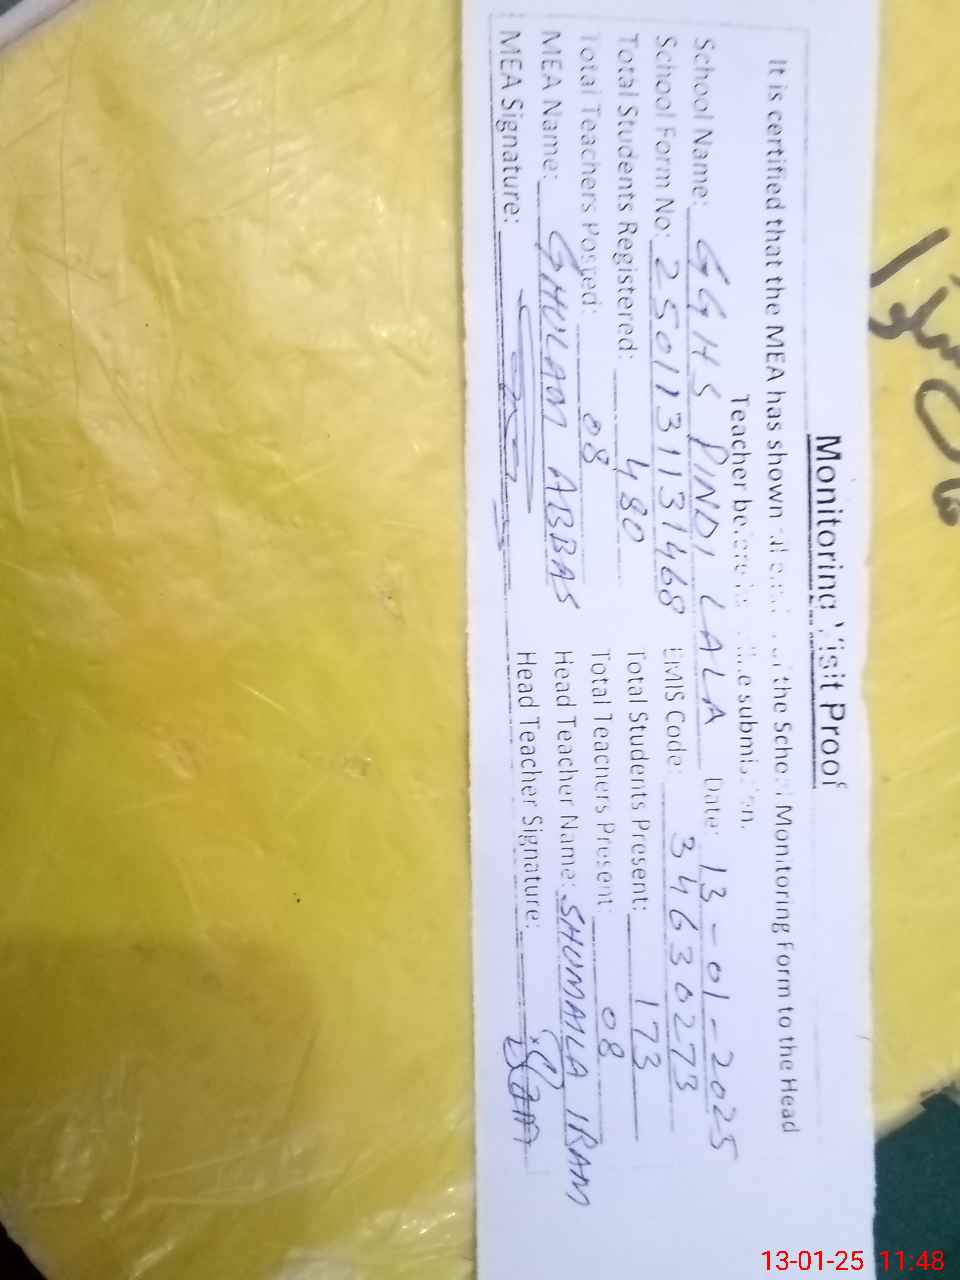 Monitoring Visit Proof
It is certified that the MEA has shown the School Monitoring Form to the Head
Teacher before submission.
School Name: GGHS PINDI LALA Date: 13-01-2025
School Form No: 2501131131468 EMIS Code: 34630273
Total Students Registered: 480 Total Students Present: 173
Total Teachers Posted: 08 Total Teachers Present: 08
MEA Name: GHULAM ABBAS Head Teacher Name: SHUMAILA IRAM
MEA Signature: Head Teacher Signature:
13-01-25 11:48